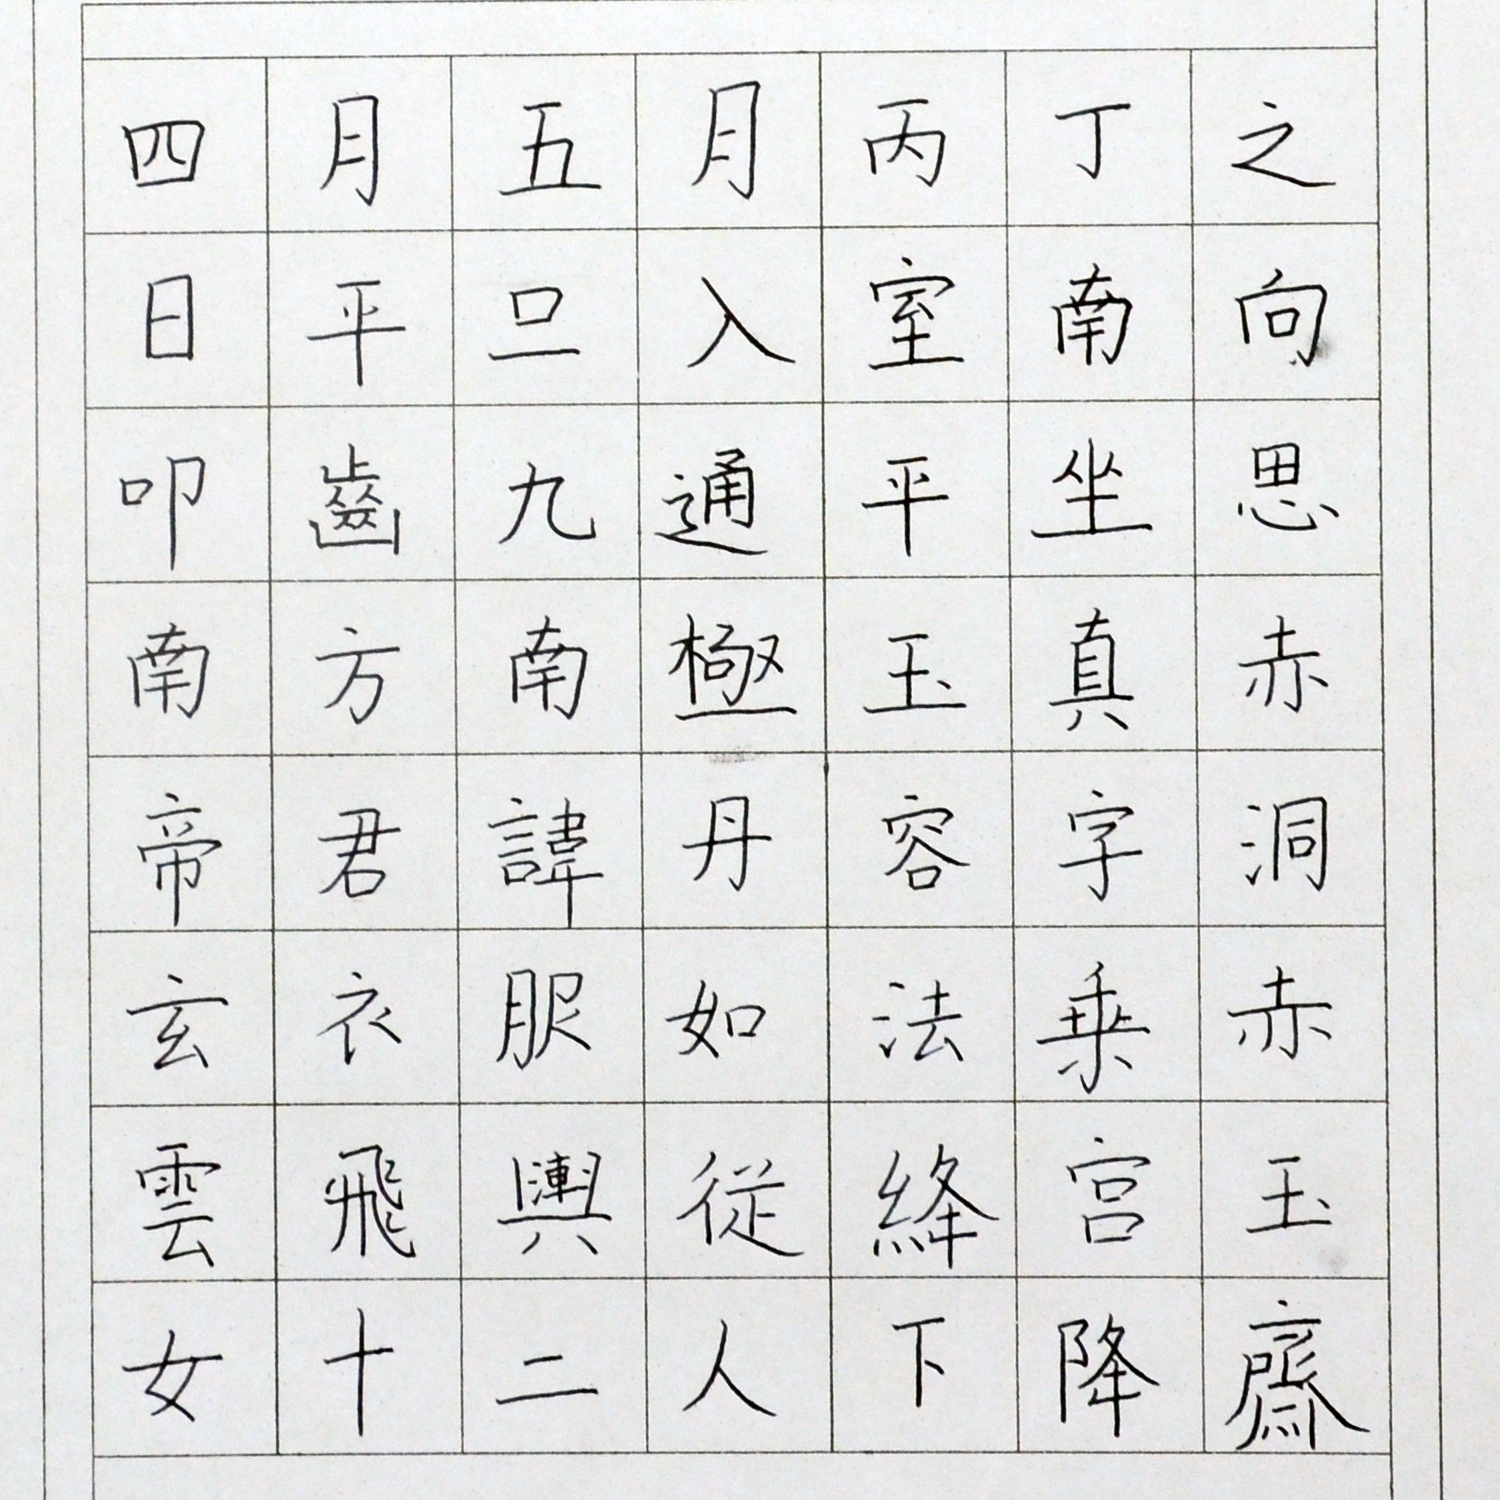 四月五月丙丁之
日平旦入室南向
叩齒九通平坐思
南方南極玉真赤
帝君諱丹容字洞
玄衣服如法乘赤
雲飛輿從絳宮玉
女十二人下降齋